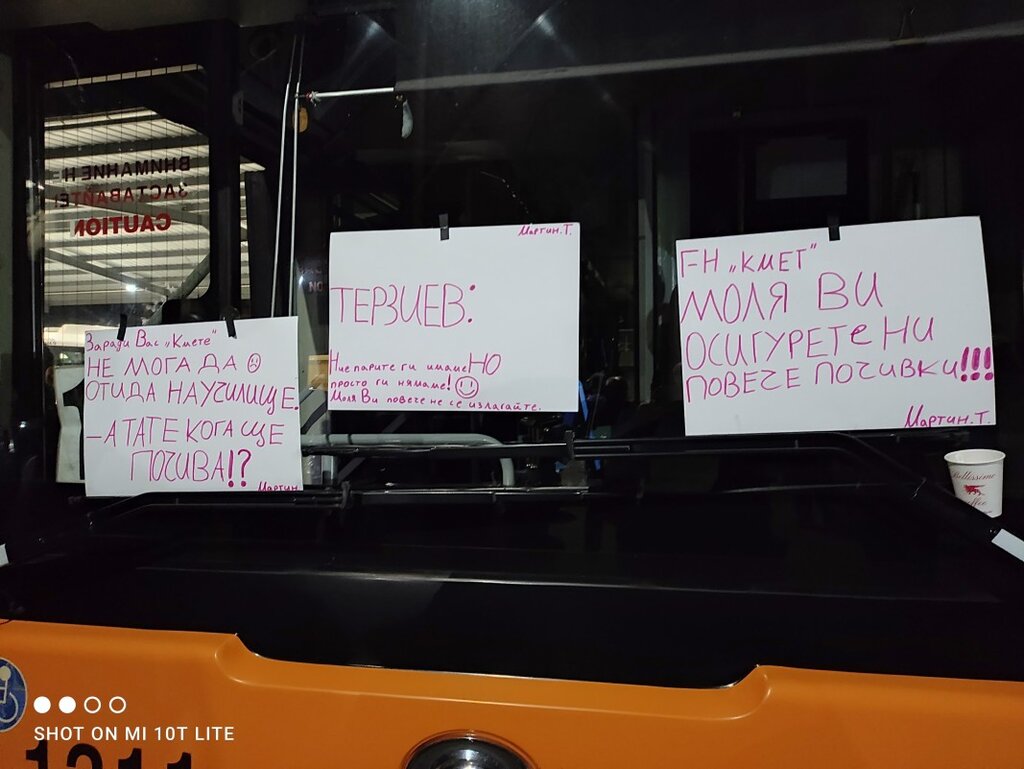 ВНИМАНИЕ Н
ЗАСТАВАЙТЕ
CAUTION
Заради Вас „Кмете"
НЕ МОГА ДА ☹
ОТИДА НАУЧИЛИЩЕ.
–А ТАТЕ КОГА ЩЕ
ПОЧИВА!?
Мартин
Мартин.Т.
ТЕРЗИЕВ:
Ние парите ги имаме НО
просто ги нямаме! ☺
Моля Ви повече не се излагайте.
Г-Н „КМЕТ"
МОЛЯ ВИ
ОСИГУРЕТЕ НИ
ПОВЕЧЕ ПОЧИВКИ!!!
Мартин.Т.
Bellissimo
coffee
SHOT ON MI 10T LITE